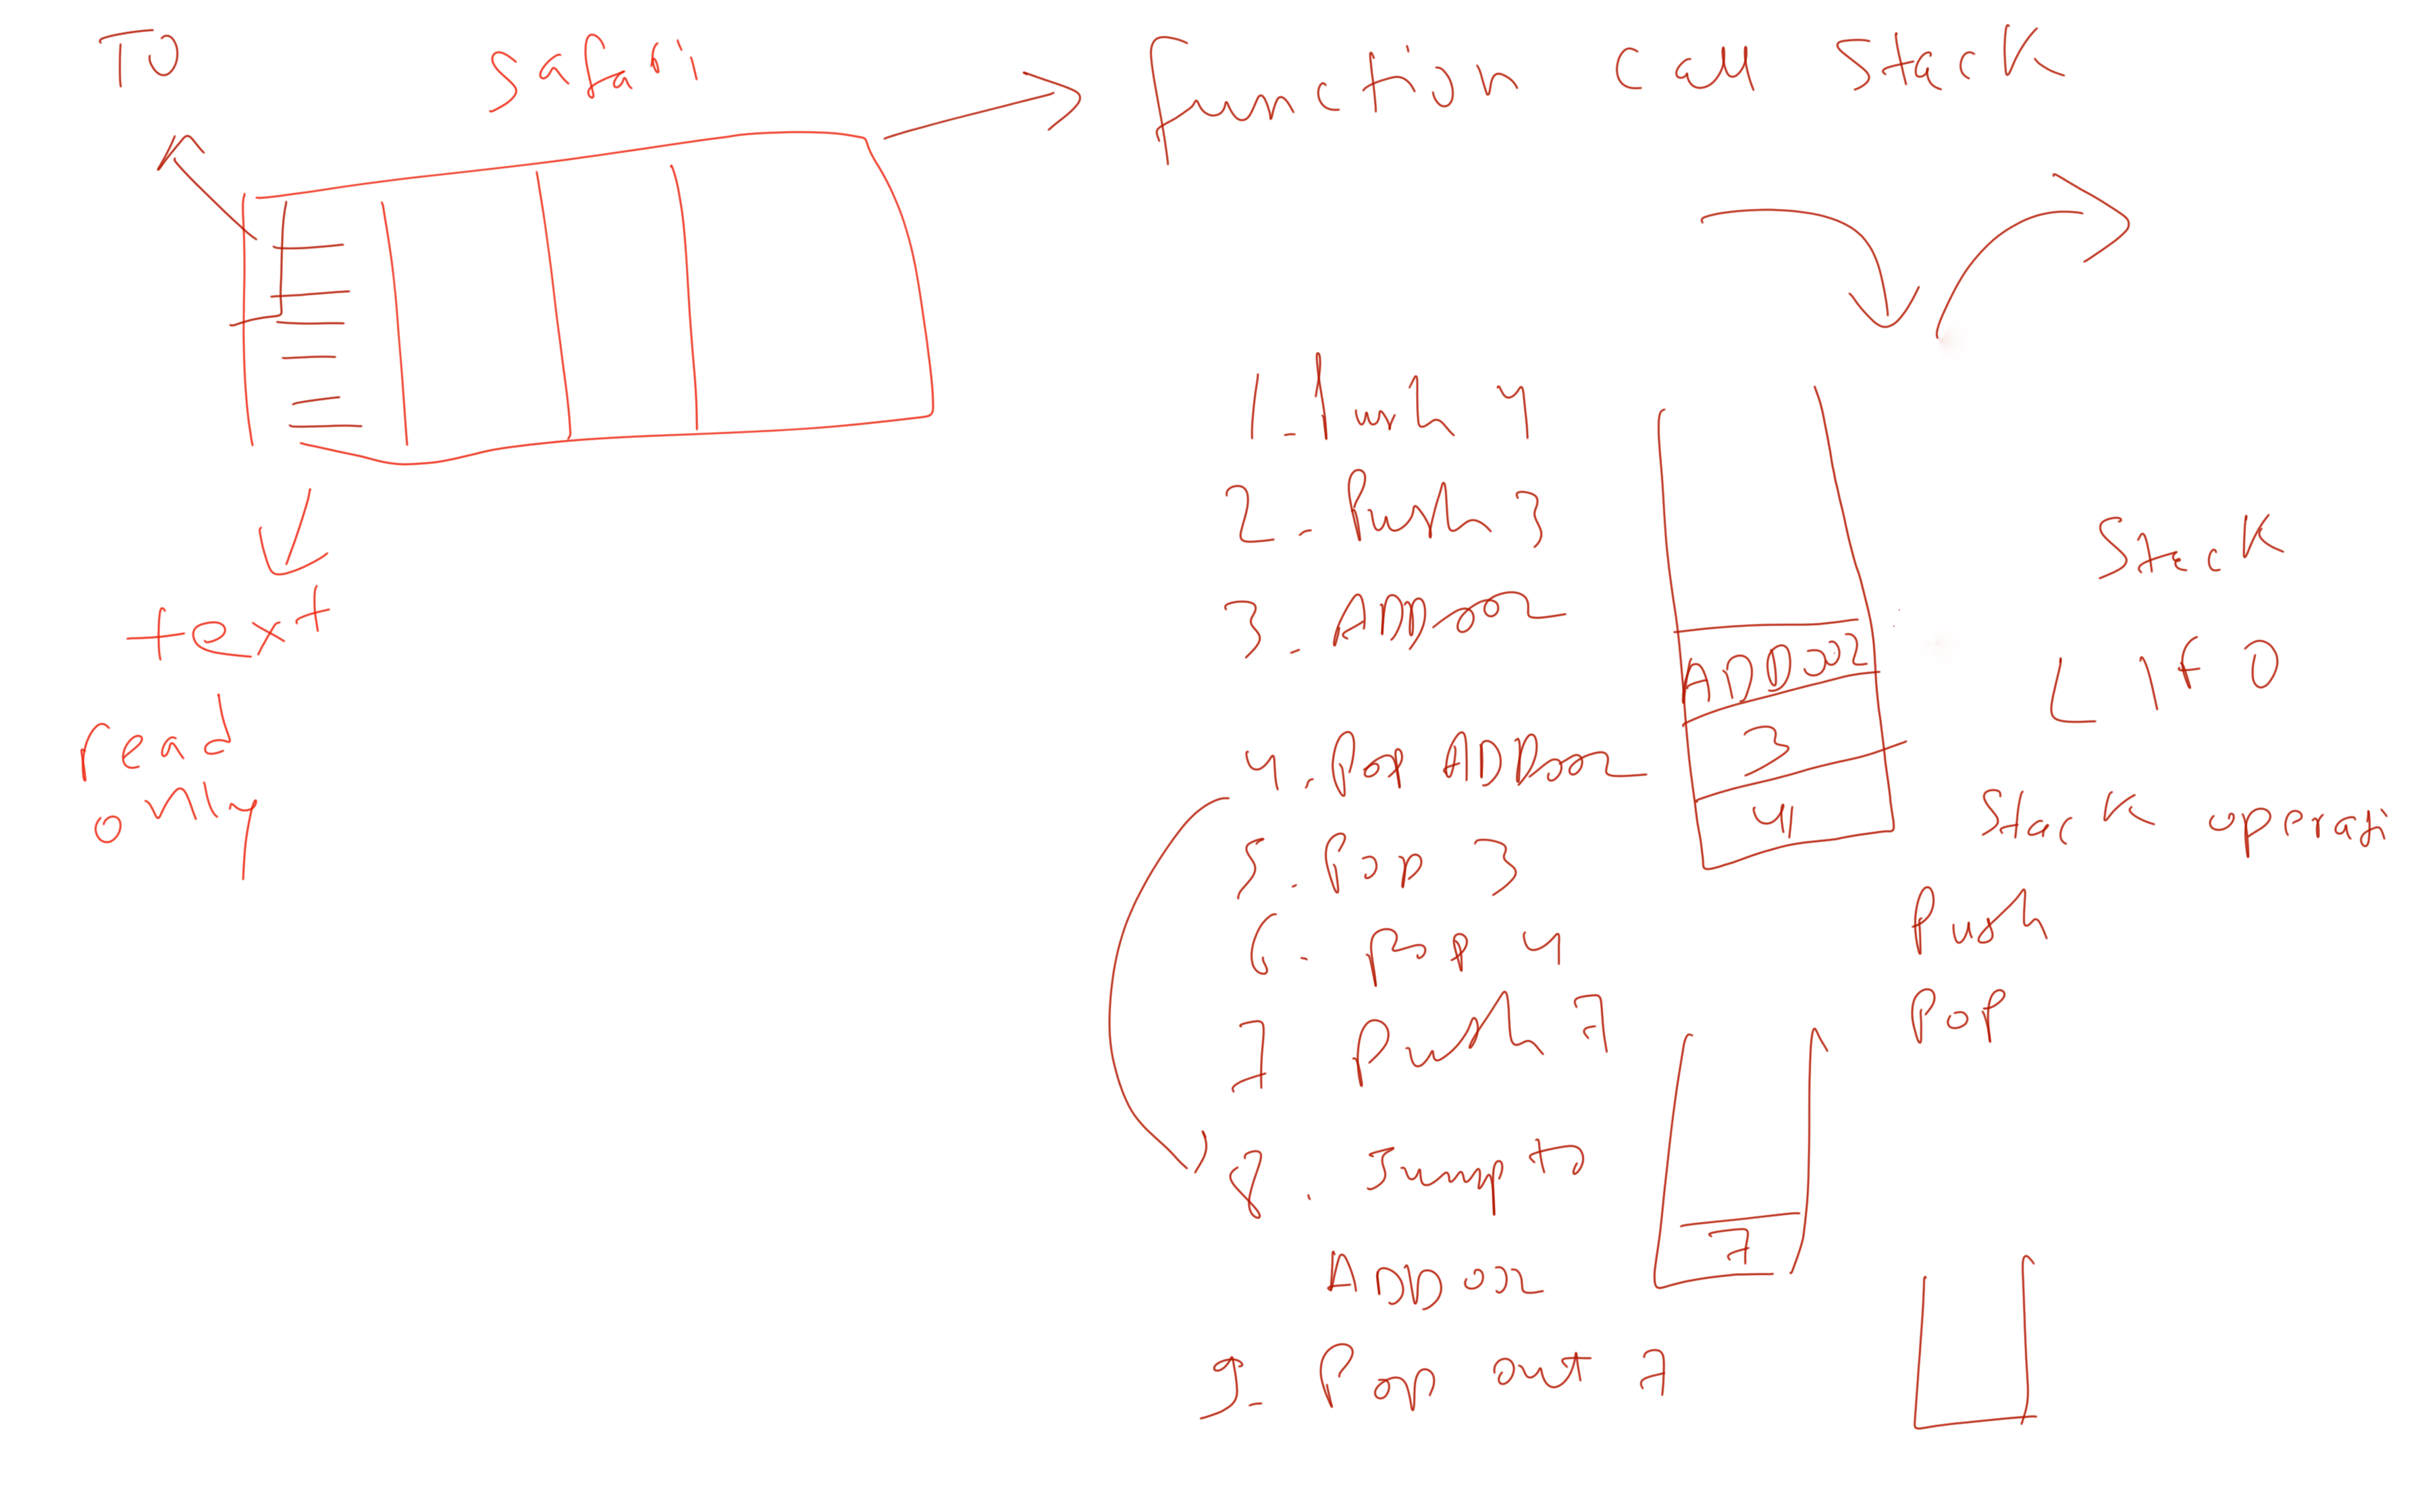 TO
Safari
function call stack
1. Push 4
2. Push 3
3. ADD002
4. Pop ADD002
5. Pop 3
6. Pop 4
7 Push 7
8. Jump to
ADD002
9. Pop out 7
ADD002
3
4
7
Stack
LIFO
Stack operati
Push
Pop
text
read
only